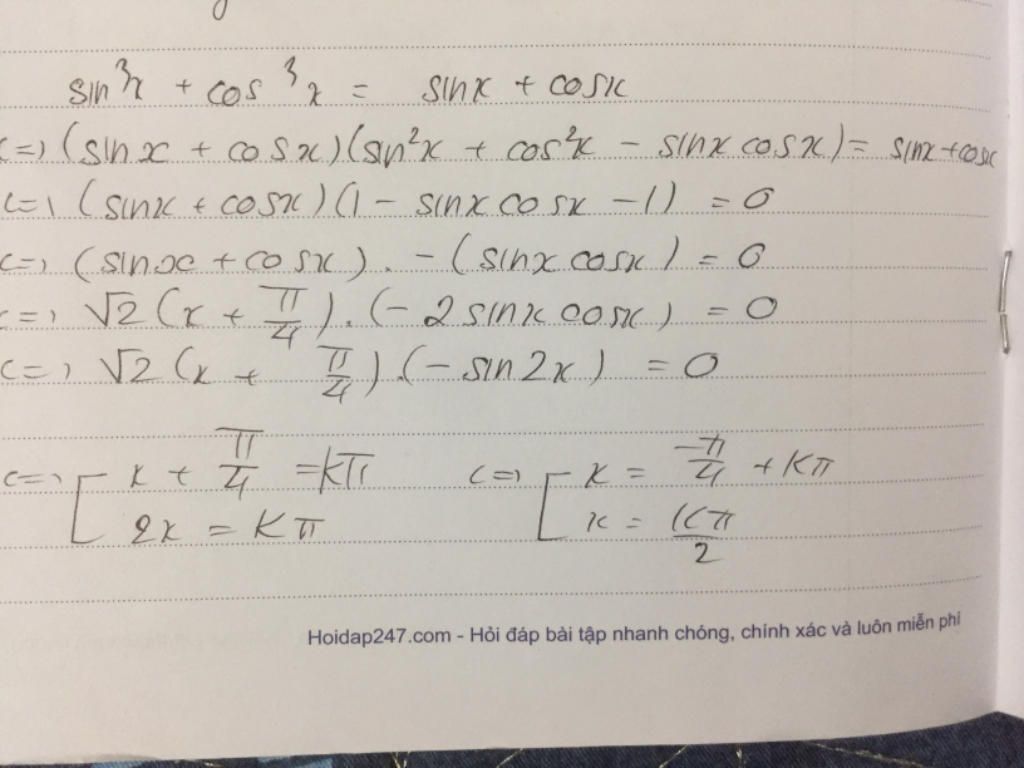 sin³x + cos³x = sinx + cosx
<=> (sinx + cosx)(sin²x + cos²x - sinx cosx) = sinx + cosx
<=> (sinx + cosx)(1 - sinx cosx - 1) = 0
<=> (sinx + cosx) . - (sinx cosx) = 0
<=> √2 (x + π/4) . (- 2 sinx cosx) = 0
<=> √2 (x + π/4) . (- sin2x) = 0
<=> [ x + π/4 = kπ <=> [ x = -π/4 + kπ
2x = kπ x = kπ/2
Hoidap247.com - Hỏi đáp bài tập nhanh chóng, chính xác và luôn miễn phí